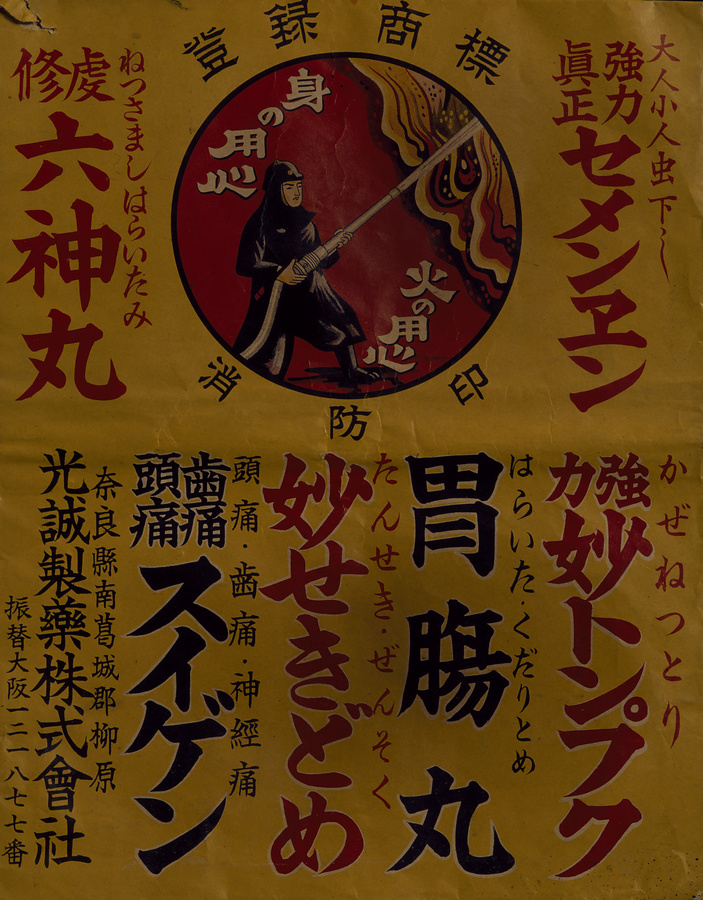 登録商標
身の用心
火の用心
消防印
大人小人虫下し
強力
眞正
セメンヱン
ねつさましはらいいたみ
修虔
六神丸
かぜねつとり
強力
妙トンプク
はらいた・くだりとめ
胃腸丸
たんせき・ぜんそく
妙せきどめ
頭痛・歯痛・神經痛
歯痛
頭痛
スイゲン
奈良縣南葛城郡柳原
光誠製藥株式會社
振替大阪一二一八七七番